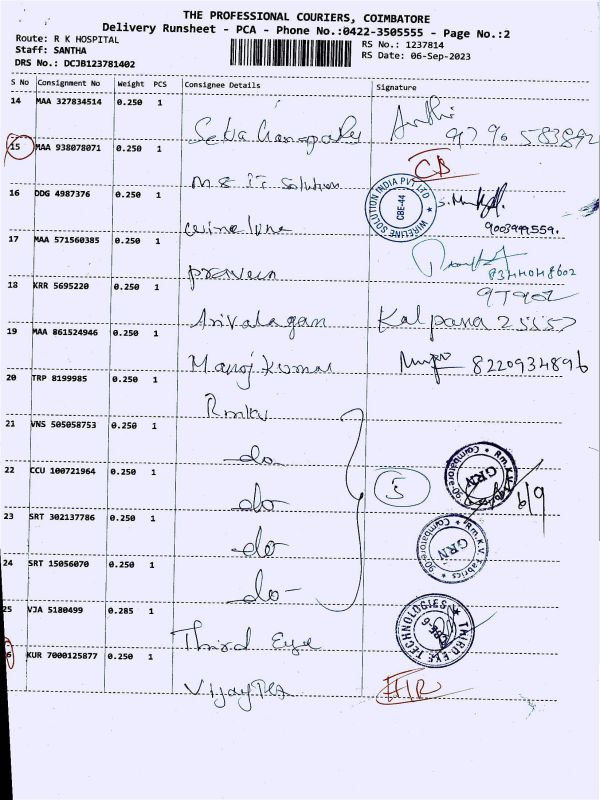 THE PROFESSIONAL COURIERS, COIMBATORE
Delivery Runsheet - PCA - Phone No.:0422-3505555 - Page No.:2
Route: R K HOSPITAL
Staff: SANTHA
DRS No.: DCJB123781402
RS No.: 1237814
RS Date: 06-Sep-2023
S No Consignment No Weight PCS Consignee Details Signature
14 MAA 327834514 0.250 1
9790583892
15 MAA 938078071 0.250 1
CB
M S IT Solution
16 DDG 4987376 0.250 1
WIRELINE SOLUTION INDIA PVT LTD
CBE-44
17 MAA 571560385 0.250 1
praveen
8344048602
18 KRR 5695220 0.250 1
Arivalagan Kalpana
19 MAA 861524946 0.250 1
Manoj Kumar 8220934896
20 TRP 8199985 0.250 1
Rmkv
21 VNS 505058753 0.250 1
do
22 CCU 100721964 0.250 1
5
do
Rm.K.V. Fabrics Coimbatore
GRN
6/9
23 SRT 302137786 0.250 1
do
Rm.K.V. Fabrics Coimbatore
GRN
24 SRT 15056070 0.250 1
do-
25 VJA 5180499 0.285 1
Third Eye
THIRD-EYE TECHNOLOGIES
CBE-6
26 KUR 7000125877 0.250 1